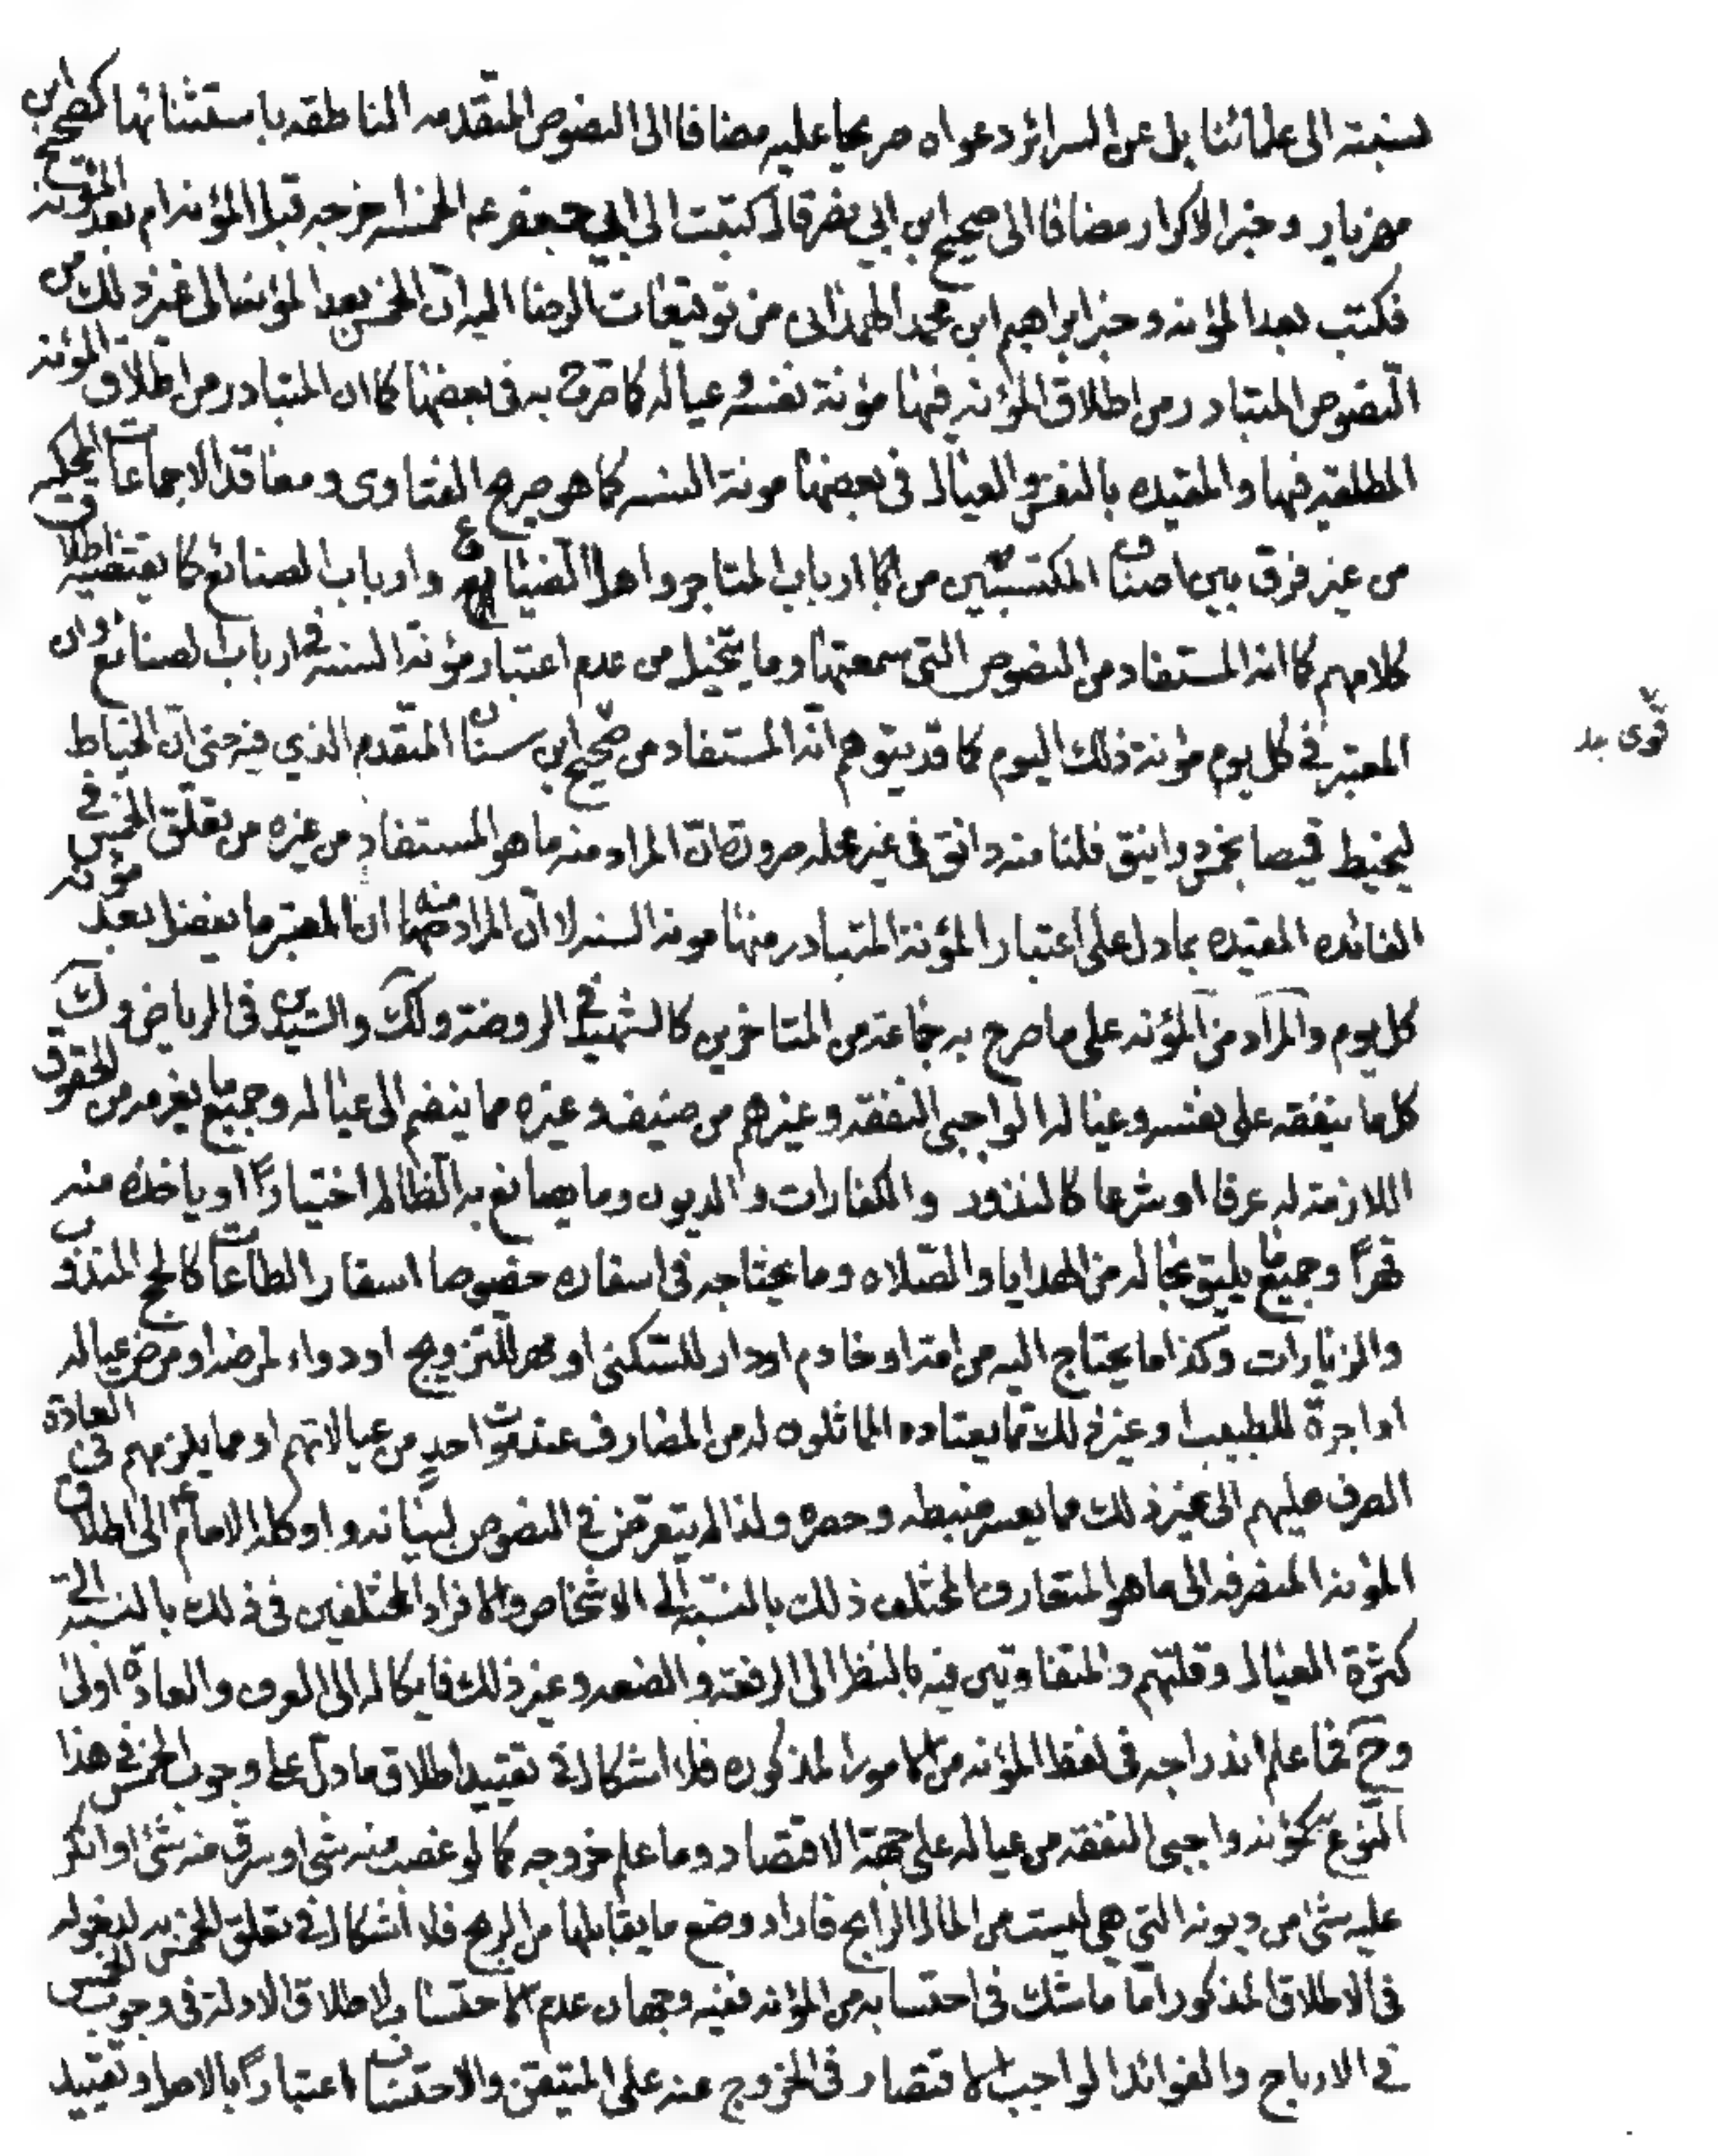 نسبته الى علمائنا بل عن السرائر دعواه صريحا عليه مضافا الى النصوص المتقدمه الناطقه باستثنائها كصحيح ابن
مهزيار و خبر الاكرار مضافا الى صحيح ابن ابي نصر قال كتبت الى ابي جعفر ع الخمس اخرجه قبل المؤنه ام بعد المؤنه
فكتب بعد المؤنه و خبر ابراهيم ابن محمد الهمذانى من توقيعات الرضا اليه ان الخمس بعد المؤنه الى غير ذلك من
النصوص المتبادر من اطلاق المؤنه فيها مؤنة نفسه و عياله كما صرح به فى بعضها كما ان المتبادر من اطلاق المؤنه
المطلقه فيها والمقيده بالنفس والعيال فى بعضها مونة السنه كما هو صريح الفتاوى و معاقد الاجماعات المحكيه
من غير فرق بين اصناف المكتسبين من ارباب المتاجر و اهل الضياع و ارباب الصنائع كما يقتضيه اطلاق
كلامهم كما انه المستفاد من النصوص التى سمعتها و ما يتخيل من عدم اعتبار مؤنة السنه فى ارباب الصنائع و ان
المعتبر فى كل يوم مؤنة ذلك اليوم كما قد يتوهم انه المستفاد من صحيح ابن سنان المتقدم الذي فيه حتى ان الخياط
قوى جد
ليخيط قميصا بخمسة دوانيق فلنا منه دانق فى غير محله ضرورة ان المراد منه ما هو المستفاد من غيره من تعلق الخمس فى
الفائده المقيده بما دل على اعتبار المؤنة المتبادر منها مونه السنه لا ان المراد منه ان المعتبر ما يفضل بعد مؤنه
كل يوم والمراد من المؤنه على ما صرح به جماعة من المتاخرين كالشهيد فى الروضة و لك والسيد فى الرياض و ك
كل ما ينفقه على نفسه و عياله الواجبى النفقه و غيرهم من ضيف و غيره مما ينضم الى عياله و جميع ما يغرمه من الحقوق
اللازمة له عرفا او شرعا كالنذور والكفارات و الديون و ما يصانع به الظالم اختيارًا او ياخذه منه
قهرًا و جميع ما يليق بحاله من الهدايا والصلاه و ما يحتاجه فى اسفاره خصوصا اسفار الطاعات كالحج المندوب
والزيارات و كذا ما يحتاج اليه من امة او خادم او دار للسكنى او مهر للتزويج او دواء لمرضه او مرض عياله
او اجرة للطبيب و غير ذلك مما يعتاده المماثلون له من المصارف عند موت احدٍ من عيالاتهم او مما يلزمهم فى العادة
الصرف عليهم الى غير ذلك مما يعسر ضبطه و حصره و لذا لم يتعرض فى النصوص لبيانه و اوكله الامام ع الى اطلاق
المؤنه المنصرفه الى ما هو المتعارف المختلف ذلك بالنسبة الى الاشخاص والافراد المختلفين فى ذلك بالنسبة الى
كثرة العيال و قلتهم و المتفاوتين فيه بالنظر الى الرفعة و الضعه و غير ذلك فايكاله الى العرف والعادة اولى
و ح فما علم اندراجه فى لفظ المؤنه من الامور المذكوره فلا اشكال فى تقييد اطلاق ما دل على وجوب الخمس فى هذا
النوع كمؤنه واجبى النفقه من عياله على جهة الاقتصاد و ما علم خروجه كما لو غصب منه شئ او سرق منه شئ او انكر
عليه شئ من ديونه التي هي ليست من المال الرابح فاراد وضع ما يقابلها من الربح فلا اشكال فى تعلق الخمس به لدخوله
فى الاطلاق المذكور اما ما شك فى احتسابه من المؤنه ففيه وجهان عدم الاحتساب لاطلاق الادلة فى وجوب الخمس
فى الارباح والفوائد الواجب الاقتصار فى الخروج عنه على المتيقن والاحتساب اعتبارًا بالاصل و تقييد